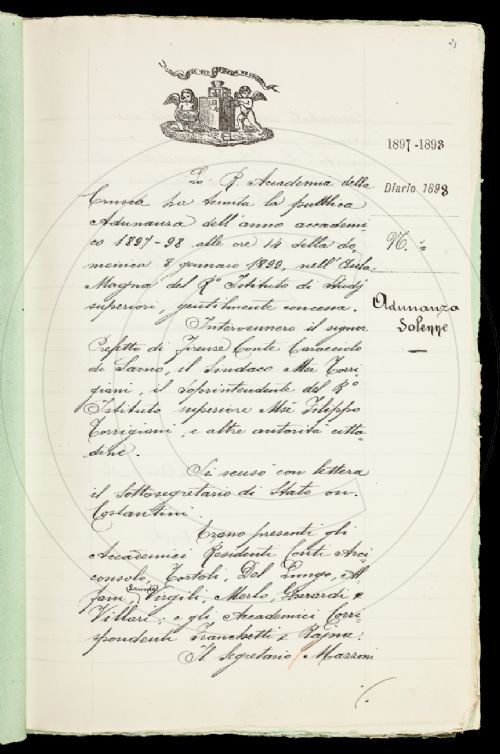 21
1897-1898
Diario 1898
N. "
Adunanza
Solenne
La R. Accademia della
Crusca ha tenuta la pubblica
Adunanza dell'anno accademi
co 1897-98 alle ore 14 della do
menica 8 gennaio 1899, nell'Aula
Magna del R.o Istituto di Studj
superiori, gentilmente concessa.
Intervennero il signor
Prefetto di Firenze Conte Caracciolo
di Sarno, il Sindaco Mse Torri
giani, il Soprintendente del R.o
Istituto superiore Mse Filippo
Torrigiani, e altre autorità citta
dine.
Si scusò con lettera
il Sottosegretario di Stato on.
Costantini.
Erano presenti gli
Accademici Residenti Conti Arci
consolo, Tortoli, Del Lungo, Al
fani, Virgilj, Merlo, Gherardi e
Villari; e gli Accademici Corri
spondenti Franchetti e Rajna:
Il Segretario Mazzoni